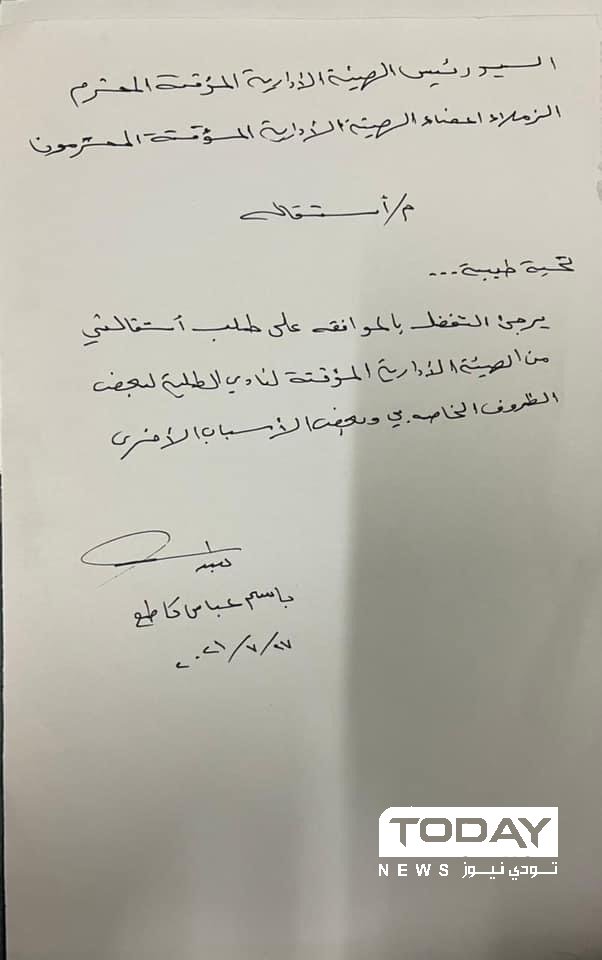 السيد رئيس الهيئة الأدارية المؤقتة المحترم
الزملاء اعضاء الهيئة الأدارية المؤقتة المحترمون
م/أستقاله
تحية طيبة...
يرجئ التفضل بالموافقه على طلب أستقالتي
من الهيئة الأدارية المؤقتة لنادي الطلبة لبعض
الظروف الخاصه بي وبعض الأسباب الأخرى
باسم عباس كاطع
٢٠٢١/٧/٢٧
TODAY
NEWS تودي نيوز